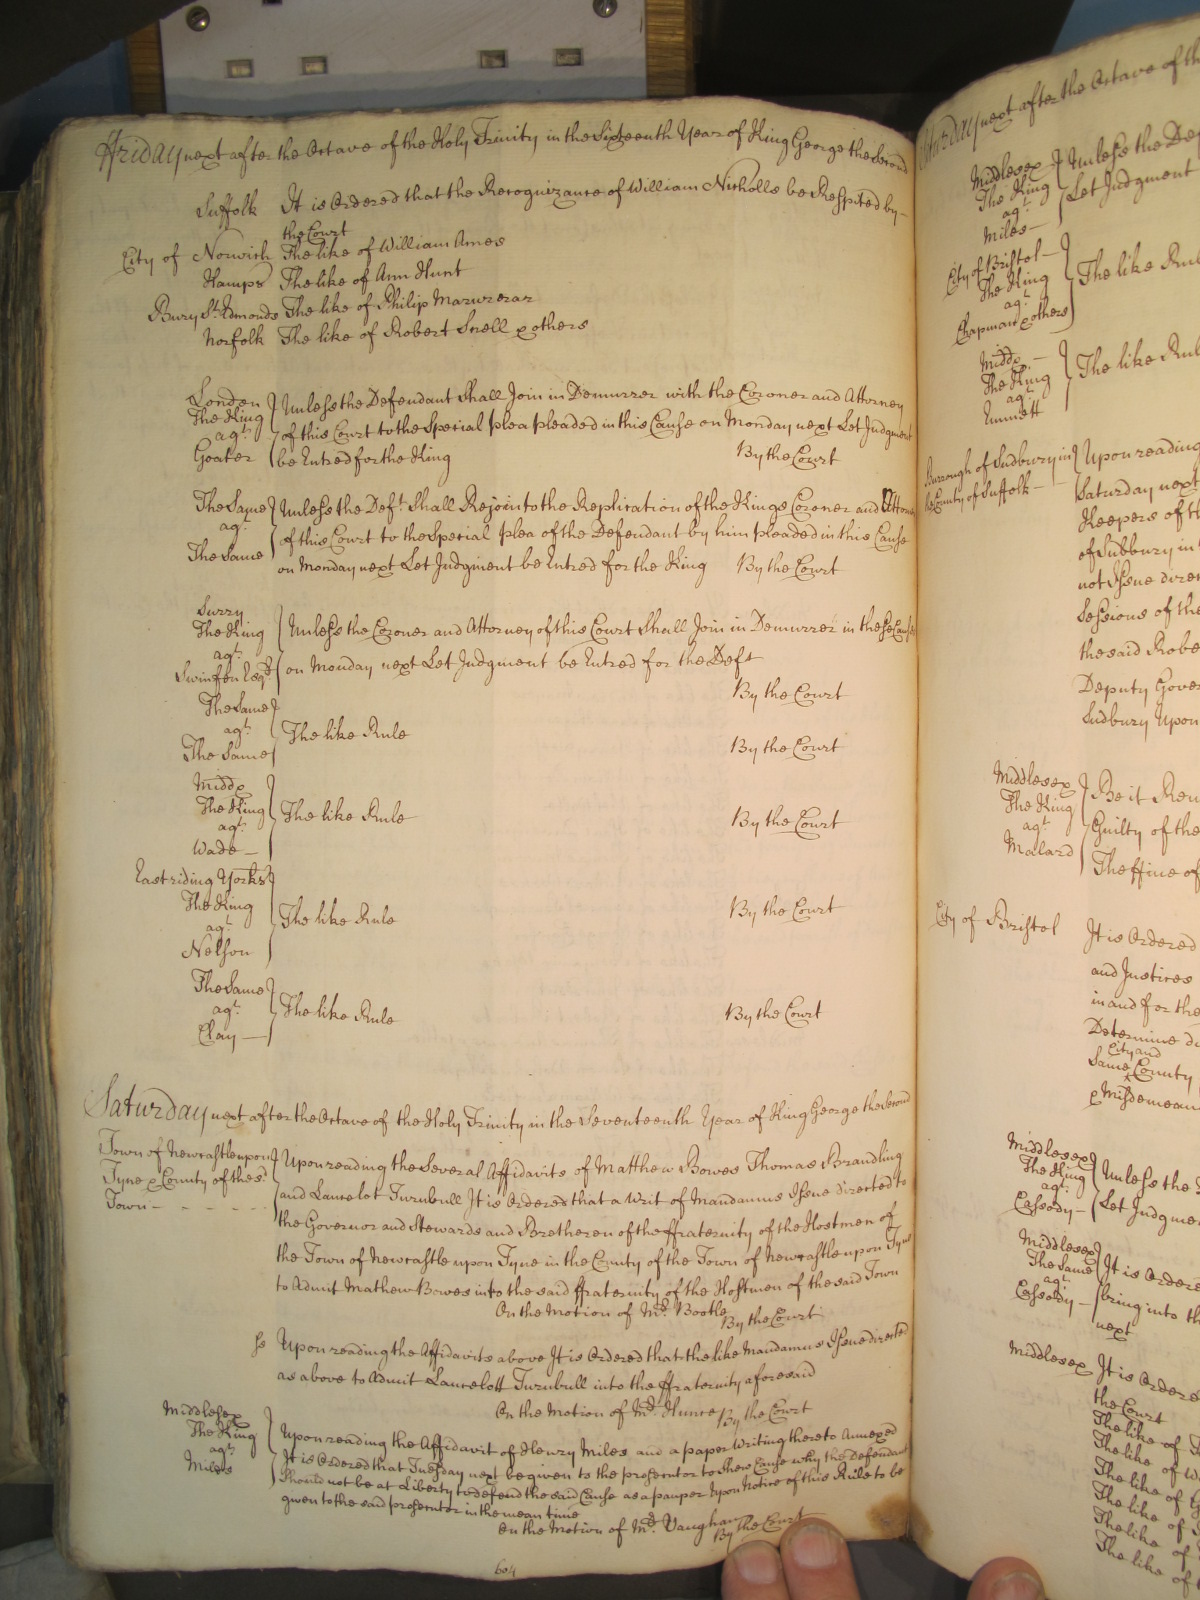 Friday next after the Octave of the Holy Trinity in the Sixteenth Year of King George the Second
Suffolk It is Ordered that the Recognizance of William Nicholls be Respited by
the Court
City of Norwich The like of William Ames
Hamps The like of Ann Hunt
Bury St. Edmonds The like of Philip
Norfolk The like of Robert Snell & others
London
The King
agt.
Goater
Unless the Defendant Shall Join in Demurrer with the Coroner and Attorney
of this Court to the Special plea pleaded in this Cause on Monday next Let Judgment
be Entred for the King By the Court
The Same
agt.
The Same
Unless the Deft. Shall Rejoin to the Replication of the Kings Coroner and Attorney
of this Court to the Special plea of the Defendant by him pleaded in this Cause
on Monday next Let Judgment be Entred for the King By the Court
Surry
The King
agt.
Swinfen Esqr.
Unless the Coroner and Attorney of this Court Shall Join in Demurrer in these Causes
on Monday next Let Judgment be Entred for the Deft
By the Court
The Same
agt.
The Same
The like Rule By the Court
Middx
The King
agt.
Wade
The like Rule By the Court
East riding Yorks
The King
agt.
Nelson
The like Rule By the Court
The Same
agt.
Clay
The like Rule By the Court
Saturday next after the Octave of the Holy Trinity in the Seventeenth Year of King George the Second
Town of Newcastle upon
Tyne & County of the s.
Town
Upon reading the Several Affidavits of Matthew Bowes Thomas Brandling
and Lancelot Turnbull It is Ordered that a Writ of Mandamus Issue directed to
the Governor and Stewards and Bretheren of the ffraternity of the Hostmen of
the Town of Newcastle upon Tyne in the County of the Town of Newcastle upon Tyne
to Admit Mathew Bowes into the said ffraternity of the Hostmen of the said Town
On the Motion of Mr. Bootle
By the Court
ss Upon reading the Affidavits above It is Ordered that the like Mandamus Issue directed
as above to Admit Lancelott Turnbull into the ffraternity aforesaid
On the Motion of Mr. Hume By the Court
Middlesex
The King
agt.
Miles
Upon reading the Affidavit of Henry Miles and a paper Writing thereto Annexed
It is Ordered that Tuesday next be given to the prosecutor to shew Cause why the Defendant
Should not be at Liberty to defend the said Cause as a pauper Upon Notice of this Rule to be
given to the said prosecutor in the mean time
On the Motion of Mr. Vaughan
By the Court
604
Saturday next after the Octave of the
Middlesex
The King
agt.
Miles
Unless the
Let Judgment
City of Bristol
The King
agt.
Chapman & others
The like
Middx
The King
agt.
Emmett
The like
Burrough of Sudbury in
the County of Suffolk
Upon reading
Saturday next
Keepers of
of Sudbury in
not Issue
Sessions of the
the said
Deputy
Sudbury Upon
Middlesex
The King
agt.
Malard
Be it
Guilty of the
The ffine of
City of Bristol It is Ordered
and Justices
in and for the
Determine
City and
Same County
& Misdemean
Middlesex
The King
agt.
Cassody
Unless the
Let
Middlesex
The Same
agt.
Cassody
It is Ordered
bring into
next
Middlesex It is Ordered
the Court
The like of
The like of
The like of
The like of
The like of
The like of